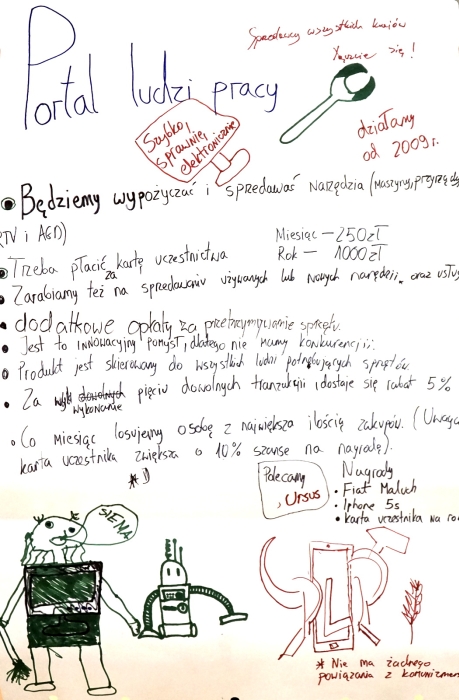 Portal ludzi pracy
Sprzedawcy wszystkich krajów
łączcie się!
Szybko,
sprawnie,
elektronicznie
działamy
od 2009 r.
• Będziemy wypożyczać i sprzedawać narzędzia (maszyny, przyrządy
RTV i AGD)
• Trzeba płacić za kartę uczestnictwa
Miesiąc – 250 zł
Rok – 1000 zł
• Zarabiamy też na sprzedawaniu używanych lub nowych narzędzi, oraz usług
• dodatkowe opłaty za przetrzymywanie sprzętu.
• Jest to innowacyjny pomysł, dlatego nie mamy konkurencji.
• Produkt jest skierowany do wszystkich ludzi potrzebujących sprzętów.
• Za wykonanie pięciu dowolnych tranzakcji dostaje się rabat 5%
• Co miesiąc losujemy osobę z największa ilością zakupów. (Uwaga
karta uczestnika zwiększa o 10% szanse na nagrodę).
Polecamy
Ursus
Nagrody
• Fiat Maluch
• Iphone 5s
• karta uczestnika na ro
SIEMA
* Nie ma żadnego
powiązania z komunizmem